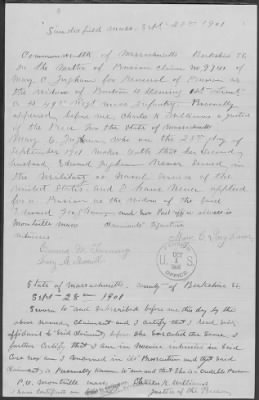 Sandisfield Mass. Sept. 28th 1901
Commonwealth of Massachusetts Berkshire ss.
In the Matter of Pension Claim No
Mary C. Ingham for Renewal of Pension as
the widow of Burton D. Deming 1st Lieut
Co. 49th Regt Mass Infantry. Personally
appeared before me, Charles K. Williams a Justice
of the Peace for the State of Massachusetts
Mary C. Ingham who on the 28th day of
September 1901 makes oath that her Second
husband, Edward Ingham Never Served in
the Military or Naval Service of the
United States and I have Never applied
for a Pension as the widow of the Said
Edward Ingham and her Post office address is
Montville Mass Claimants Signature
witnesses Mary C Ingham
Deming
U S
OFFICE
State of Massachusetts, county of Berkshire ss.
Sept - 28th 1901
Sworn to and Subscribed before me this day by the
above named Claimant and I certify that I read said
affidavit to Said Claimant before She executed the Same. I
further Certify that I am in Nowise interested in Said
Case nor am I concerned in its Prosecution and that Said
Claimant is Personally Known to me and that She is a credible Person
P.O. Montville Mass Charles K. Williams
Justice of the Peace